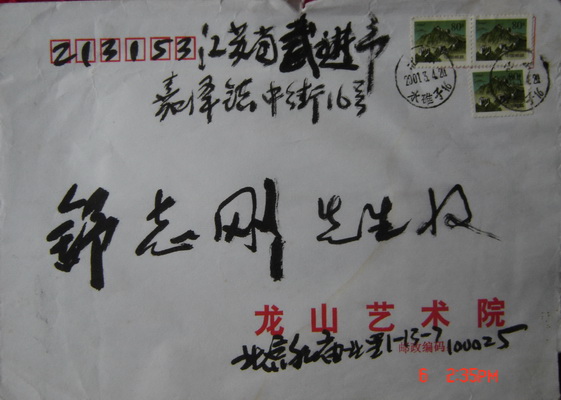 213153 江苏省武进市
嘉泽镇中街16号
2001.3.4.20
志刚 先生收
龙山艺术院
北京 北里1-13-7
邮政编码 100025
6 2:35PM